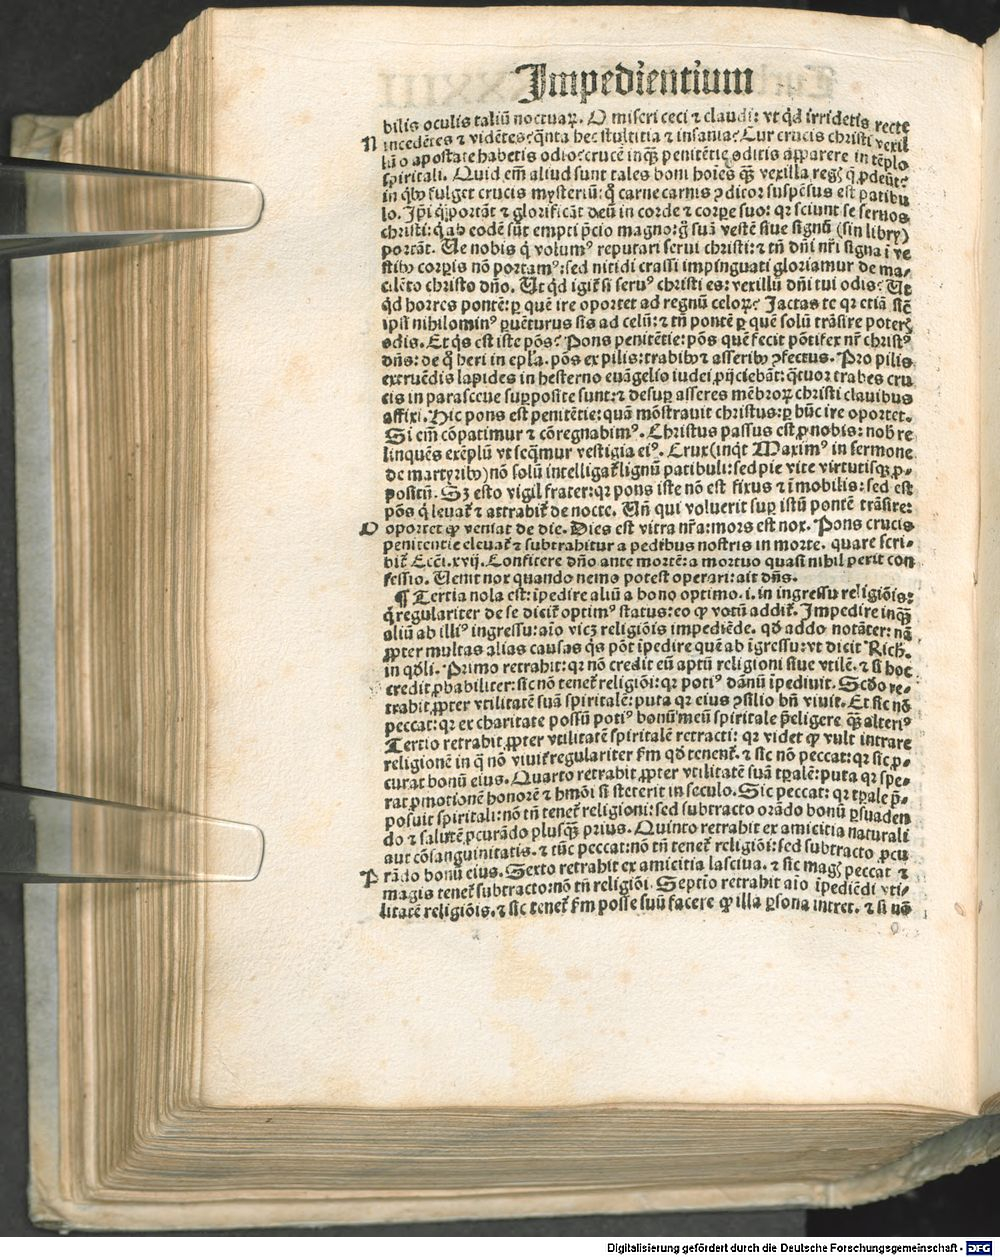 Impedientium
bilis oculis taliū noctuaꝝ. O miseri ceci ⁊ claudi: vt qͥd irridetis recte
N incedētes ⁊ vidētes: qͣnta hec stultitia ⁊ insania? Cur crucis christi vexil
lū o apostate habetis odio: crucē inqͣꝫ penitētie oditis apparere in tēplo
spiritali. Quid em̄ aliud sunt tales boni hoīes qͣꝫ vexilla regꝭ q̄ ꝓdeūt:
in qͥbꝰ fulget crucis mysteriū: qͦ carne carnis ꝯditor suspēsus est patibu
lo. Ip̄i qͥ portāt ⁊ glorificāt deū in corde ⁊ corpe suo: qr sciunt se seruos
christi: qͥ ab eodē sūt empti p̄cio magno: qͥ suā vestē siue signū (sin libry)
portāt. Ue nobis qͥ volumꝰ reputari serui christi: ⁊ tn̄ dn̄i nr̄i signa ī ve
stibꝰ corpis nō portamꝰ: sed nitidi crassi impinguati gloriamur de ma⸗
cilēto christo dn̄o. Ut qͥd igit̄ si seruꝰ christi es: vexillū dn̄i tui odis? Ut
qͥd horres pontē: ꝑ quē ire oportet ad regnū celoꝝ? Jactas te qr etiā sic̄
ipsī nihilominꝰ ꝑuēturus sis ad celū: ⁊ tn̄ pontē ꝑ quē solū trāsire poterꝭ
odis. Et qͥs est iste pōs? Pons penitētie: pōs quē fecit pōtifex nr̄ christꝰ
dn̄s: de qͦ heri in epl̄a. pōs ex pilis: trabibꝰ ⁊ asseribꝰ ꝯfectus. Pro pilis
extruēdis lapides in hesterno euāgelio iudei ꝓijciebāt: qͣtuor trabes cru
cis in parasceue supposite sunt: ⁊ desuꝑ asseres mēbroꝝ christi clauibus
affixi. Hic pons est penitētie: quā mōstrauit christus: ꝑ hūc ire oportet.
Si em̄ cōpatimur ⁊ cōregnabimꝰ. Christus passus est ꝓ nobis: nob̄ re
linquēs exēplū vt seqͣmur vestigia eiꝰ. Crux (inqͥt Maximꝰ in sermone
de martyribꝰ) nō solū intelligat̄ lignū patibuli: sed pie vite virtutisqꝫ ꝓ⸗
positū. Sꝫ esto vigil frater: qr pons iste nō est fixus ⁊ īmobilis: sed est
pōs qͥ leuat̄ ⁊ attrabit̄ de nocte. Un̄ qui voluerit suꝑ istū pontē trāsire:
O oportet ꝙ veniat de die. Dies est vitra nr̄a: mors est nox. Pons crucis
penitentie eleuat̄ ⁊ subtrahitur a pedibus nostris in morte. quare scri⸗
bit̄ Ecci. xvij. Confitere dn̄o ante mortē: a mortuo quasi nihil perit con
fessio. Uenit nox quando nemo potest operari: ait dn̄s.
¶ Tertia nola est: īpedire aliū a bono optimo. i. in ingressu religiōis:
qͥ regulariter de se dicit̄ optimꝰ status: eo ꝙ votū addit̄. Impedire inqͣꝫ
aliū ab illiꝰ ingressu: aīo vicꝫ religiōis impediēde. qd addo notāter: nā
ꝓpter multas alias causas qͥs pōt īpedire quē ab īgressu: vt dicit Rich.
in qdli. Primo retrahit: qr nō credit eū aptū religioni siue vtilē. ⁊ si hoc
credit ꝓbabiliter: sic nō tenet̄ religiōi: qr potiꝰ dānū īpediuit. Scd̄o re⸗
trahit ꝓpter vtilitatē suā spiritalē: puta qr eius ꝯsilio bn̄ viuit. Et sic nō
peccat: qr ex charitate possū potiꝰ bonū meū spiritale p̄eligere qͣꝫ alteriꝰ
Tertio retrabit ꝓpter vtilitatē spiritalē retracti: qr videt ꝙ vult intrare
religionē in qͣ nō viuit̄ regulariter ẜm qd tenent̄. ⁊ sic nō peccat: qr sic ꝓ⸗
curat bonū eius. Quarto retrabit ꝓpter vtilitatē suā tꝑalē: puta qr spe⸗
rat ꝓmotionē honorē ⁊ hmōi si steterit in seculo. Sic peccat: qr tꝑale p̄⸗
posuit spiritali: nō tn̄ tenet̄ religioni: sed subtracto orādo bonū ꝑsuaden
do ⁊ salutē ꝓcurādo plusqͣꝫ prius. Quinto retrabit ex amicitia naturali
aut cōsanguinitatis. ⁊ tūc peccat: nō tn̄ tenet̄ religiōi: sed subtracto ꝓcu
P rādo bonū eius. Sexto retrabit ex amicitia lasciua. ⁊ sic magꝭ peccat ⁊
magis tenet̄ subtracto: nō tn̄ religiōi. Septīo retrabit aīo īpediēdi vti⸗
litatē religiōis. ⁊ sic tenet̄ ẜm posse suū facere ꝙ illa ꝑsona intret. ⁊ si nō
Digitalisierung gefördert durch die Deutsche Forschungsgemeinschaft - DFG